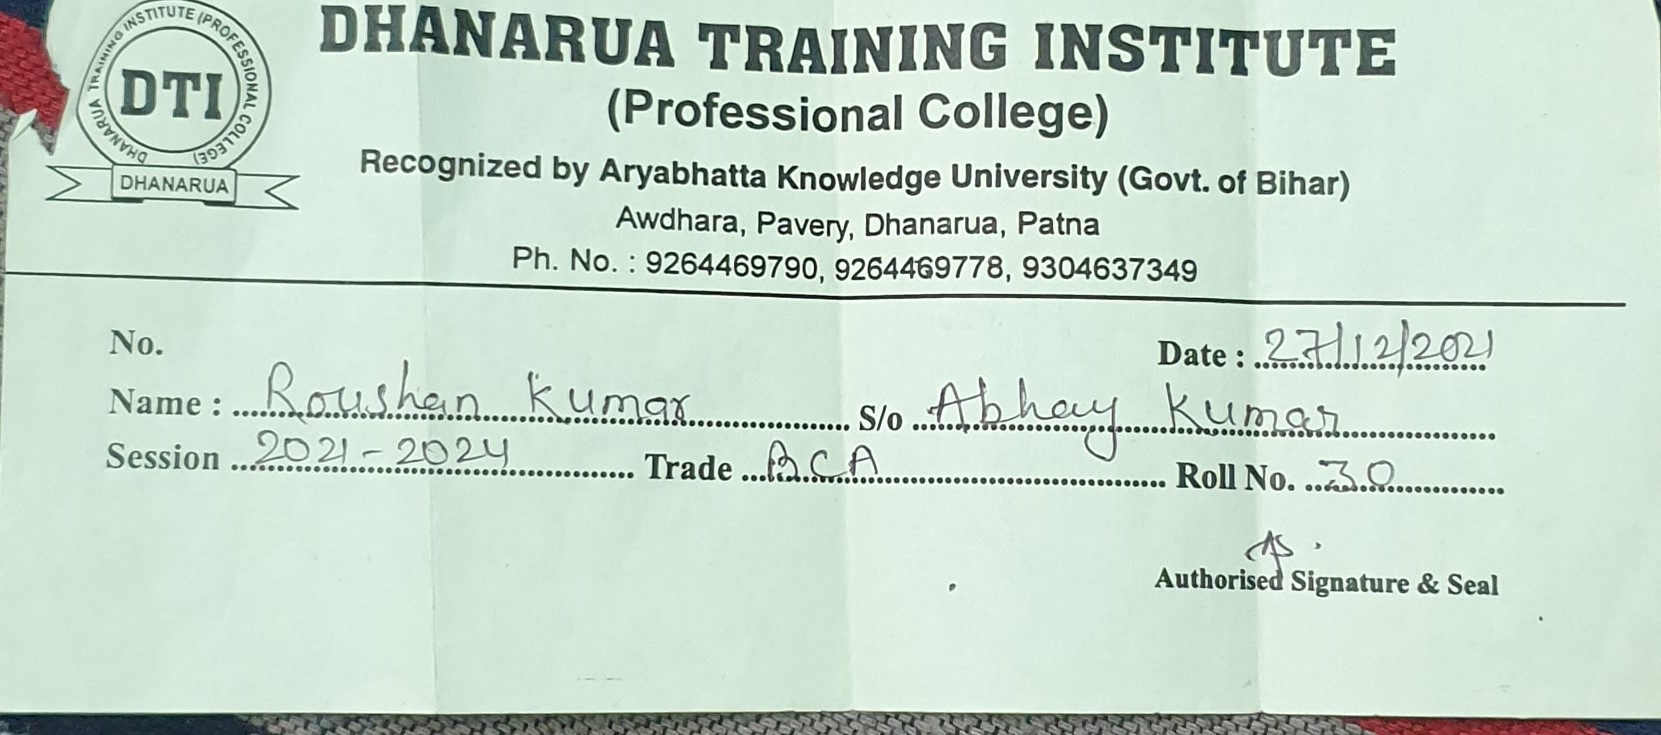 DHANARUA TRAINING INSTITUTE (PROFESSIONAL COLLEGE)
DTI
DHANARUA
DHANARUA TRAINING INSTITUTE
(Professional College)
Recognized by Aryabhatta Knowledge University (Govt. of Bihar)
Awdhara, Pavery, Dhanarua, Patna
Ph. No. : 9264469790, 9264469778, 9304637349
No.
Date : 27/12/2021
Name : Roushan Kumar S/o Abhay Kumar
Session 2021-2024 Trade BCA Roll No. 30
Authorised Signature & Seal